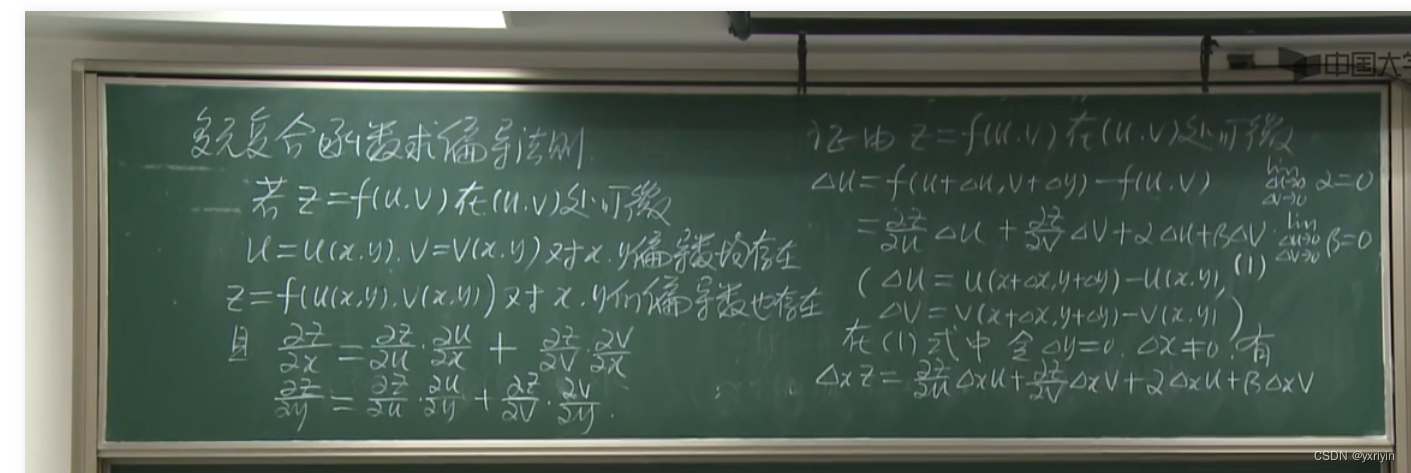 多元复合函数求偏导法则.
若 z=f(u.v) 在(u.v)处可微
u=u(x.y). v=v(x.y) 对x.y偏导数均存在
z=f(u(x.y).v(x.y)) 对x.y的偏导数也存在
且 ∂z/∂x = ∂z/∂u·∂u/∂x + ∂z/∂v·∂v/∂x
∂z/∂y = ∂z/∂u·∂u/∂y + ∂z/∂v·∂v/∂y.
证 由 z=f(u.v) 在(u.v)处可微
Δu = f(u+Δu, v+Δy) - f(u.v) lim Δu→0 Δv→0 α=0
= ∂z/∂u Δu + ∂z/∂v Δv + αΔu + βΔv. lim Δu→0 Δv→0 β=0
(1)
(Δu = u(x+Δx, y+Δy) - u(x.y),
Δv = v(x+Δx, y+Δy) - v(x.y))
在(1)式中 令 Δy=0. Δx≠0. 有
ΔxZ = ∂z/∂u Δxu + ∂z/∂v Δxv + αΔxu + βΔxv
中国大学
CSDN @yxriyin